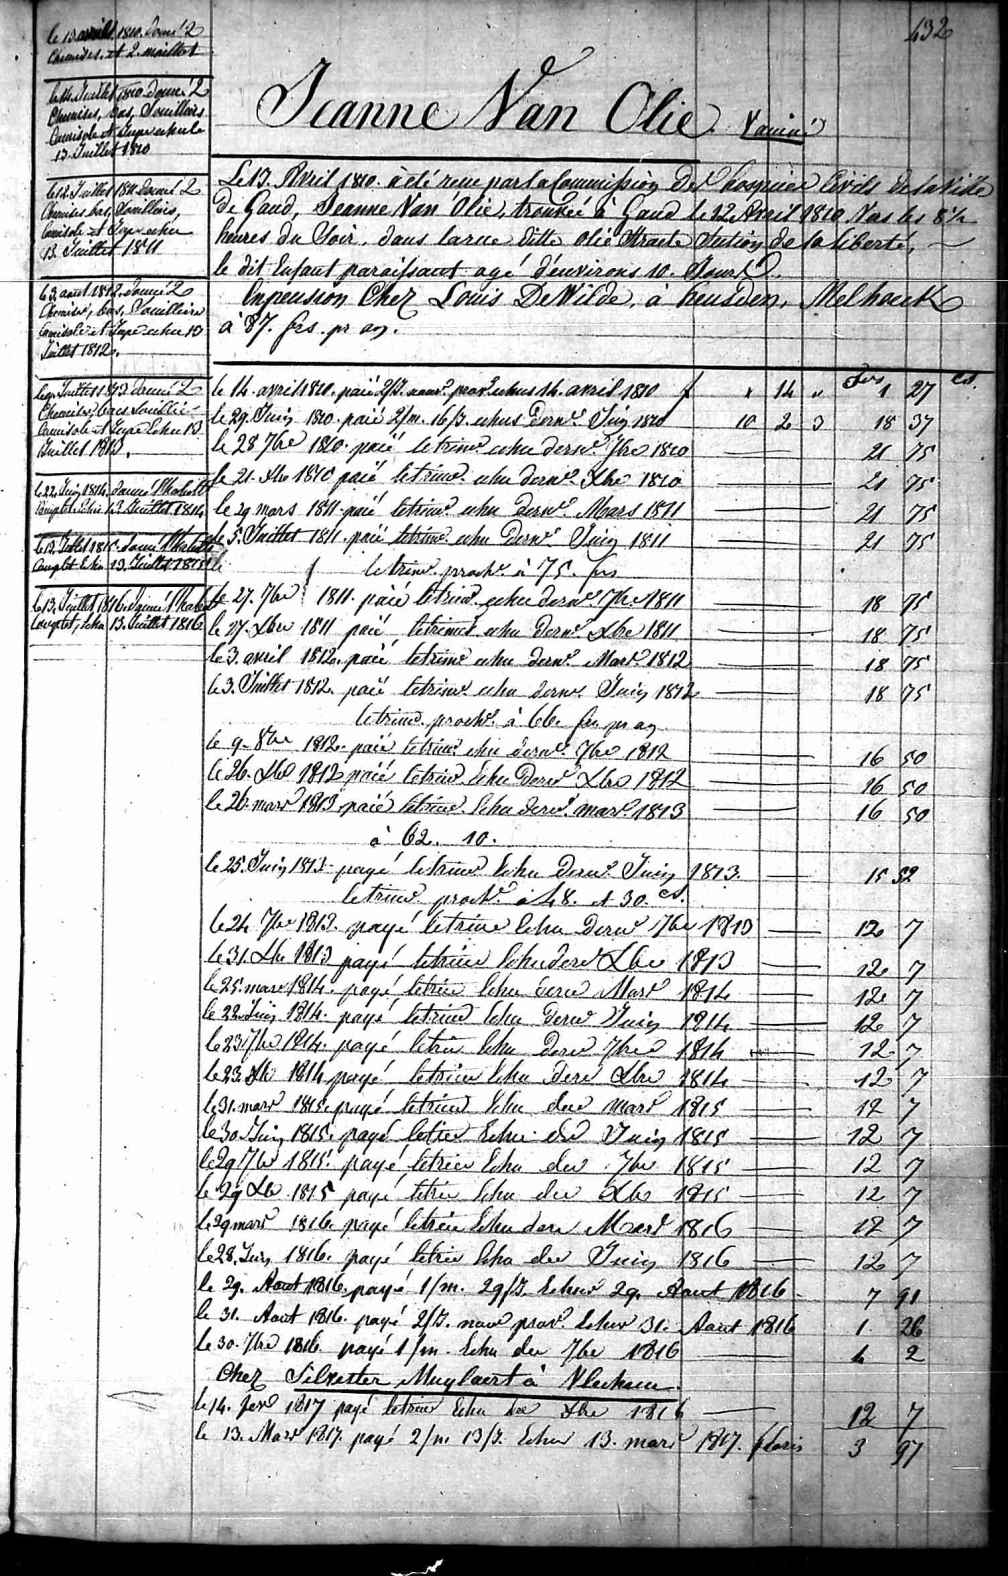 432
le 13 avrill 1810. donné 2
Chemises. et 2. maillots
le 14. Juillet 1810. donné 2
Chemises, bas, Souilliers
Camisole et Jupe echu le
13. Juillet 1810
le 12. Juillet 1811. donné 2
Chemises bas, Souilliers,
Camisole et Jupe echu
13. Juillet 1811
le 3. aout 1812. donné 2
Chemises, bas, Souilliers
Camisole et Jupe echu 13
Juillet 1812.
Juillet 1813 donné 2
Chemises, bas Souillie
Camisole et Jupe Echu 13
Juillet 1813.
le 22. Juin 1814. donné
Complet. Echu 13 Juillet 1814
le 12. Juillet 1815. donné
Complet Echu 13. Juillet 1815
le 13. Juillet 1816. Donné
Complet, Echu 13. Juillet 1816
Jeanne Van Olie.
Le 13. Avril 1810. à été reçue par la Commission Des hospices Civils de la Ville
de Gand, Jeanne Van Olie, trouvée à Gand le 12 Avril 1810 Vers les 8½
heures du Soir, dans la rue ditte olie Straete Section de la liberté,
le dit Enfant paraissant agé d'environs 10. Jours.
En pension Chez Louis De Wilde, à heusden, Melhouck
à 87. frs. pr an.
frs ct.
le 14. avril 1810. paié 2/J. nour. prov. echus 14. avril 1810 f " 14 " 1 27
le 29. Juin 1810. paié 2/m. 16/J. echus dern. Juin 1810 10 2 3 18 37
le 28 7bre 1810. paié le trim. echu dern. 7bre 1810 21 75
le 21. Xbre 1810 paié le trim. echu dern. Xbre 1810 21 75
le 29 mars 1811. paié le trim. echu dern. Mars 1811 21 75
le 5. Juillet 1811. paié le trim. echu dern. Juin 1811 21 75
le trim. proch. à 75. frs
le 27. 7bre 1811. paié le trim. echu dern. 7bre 1811 18 75
le 27. Xbre 1811 paié le trimes. echu dern. Xbre 1811 18 75
le 3. avril 1812. paié le trim. echu dern. Mars 1812 18 75
le 3. Juillet 1812. paié le trim. echu dern. Juin 1812 18 75
le trim. proch. à 66. frs pr an
le 9. 8bre 1812. paié le trim. echu dern. 7bre 1812 16 50
le 26. Xbre 1812 paié le trim. Echu dern. Xbre 1812 16 50
le 26. mars 1813. paié le trim. Echu dern. mars. 1813 16 50
à 62. 10.
le 25. Juin 1813. payé le trim Echu dern. Juin 1813. 15 52
le trim. proch. à 48. et 30. ct.
le 24. 7bre 1813. payé le trim Echu dern 7bre 1813 12 7
le 31. Xbre 1813 payé le trim Echu dern Xbre 1813 12 7
le 25. mars 1814. payé le trim Echu dern Mars 1814 12 7
le 22. Juin 1814. payé le trim Echu dern Juin 1814 12 7
le 23 7bre 1814. payé le trim Echu dern 7bre 1814 12 7
le 23. Xbre 1814 payé le trim Echu dern Xbre 1814 12 7
le 31. mars 1815. payé le trim Echu der mars 1815 12 7
le 30. Juin 1815. payé le trim Echu der Juin 1815 12 7
le 29 7bre 1815. payé le trim Echu der 7bre 1815 12 7
le 29 Xbre 1815 payé le trim Echu der Xbre 1815 12 7
le 29 mars 1816 payé le trim Echu dern Mars 1816 12 7
le 28. Juin 1816. payé le trim Echu der Juin 1816 12 7
le 29. Aout 1816. payé 1/m. 29/J. Echus 29. Aout 1816 7 91
le 31. Aout 1816. payé 2/J. nour prov. Echus 31. Aout 1816 1 26
le 30. 7bre 1816. payé 1/m. Echu der 7bre 1816 4 2
Chez Silvester Muylaert à
le 14. Janv 1817 payé le trim Echu der Xbre 1816 12 7
le 13. Mars 1817. payé 2/m. 13/J. Echus 13. mars 1817. floris 3 97